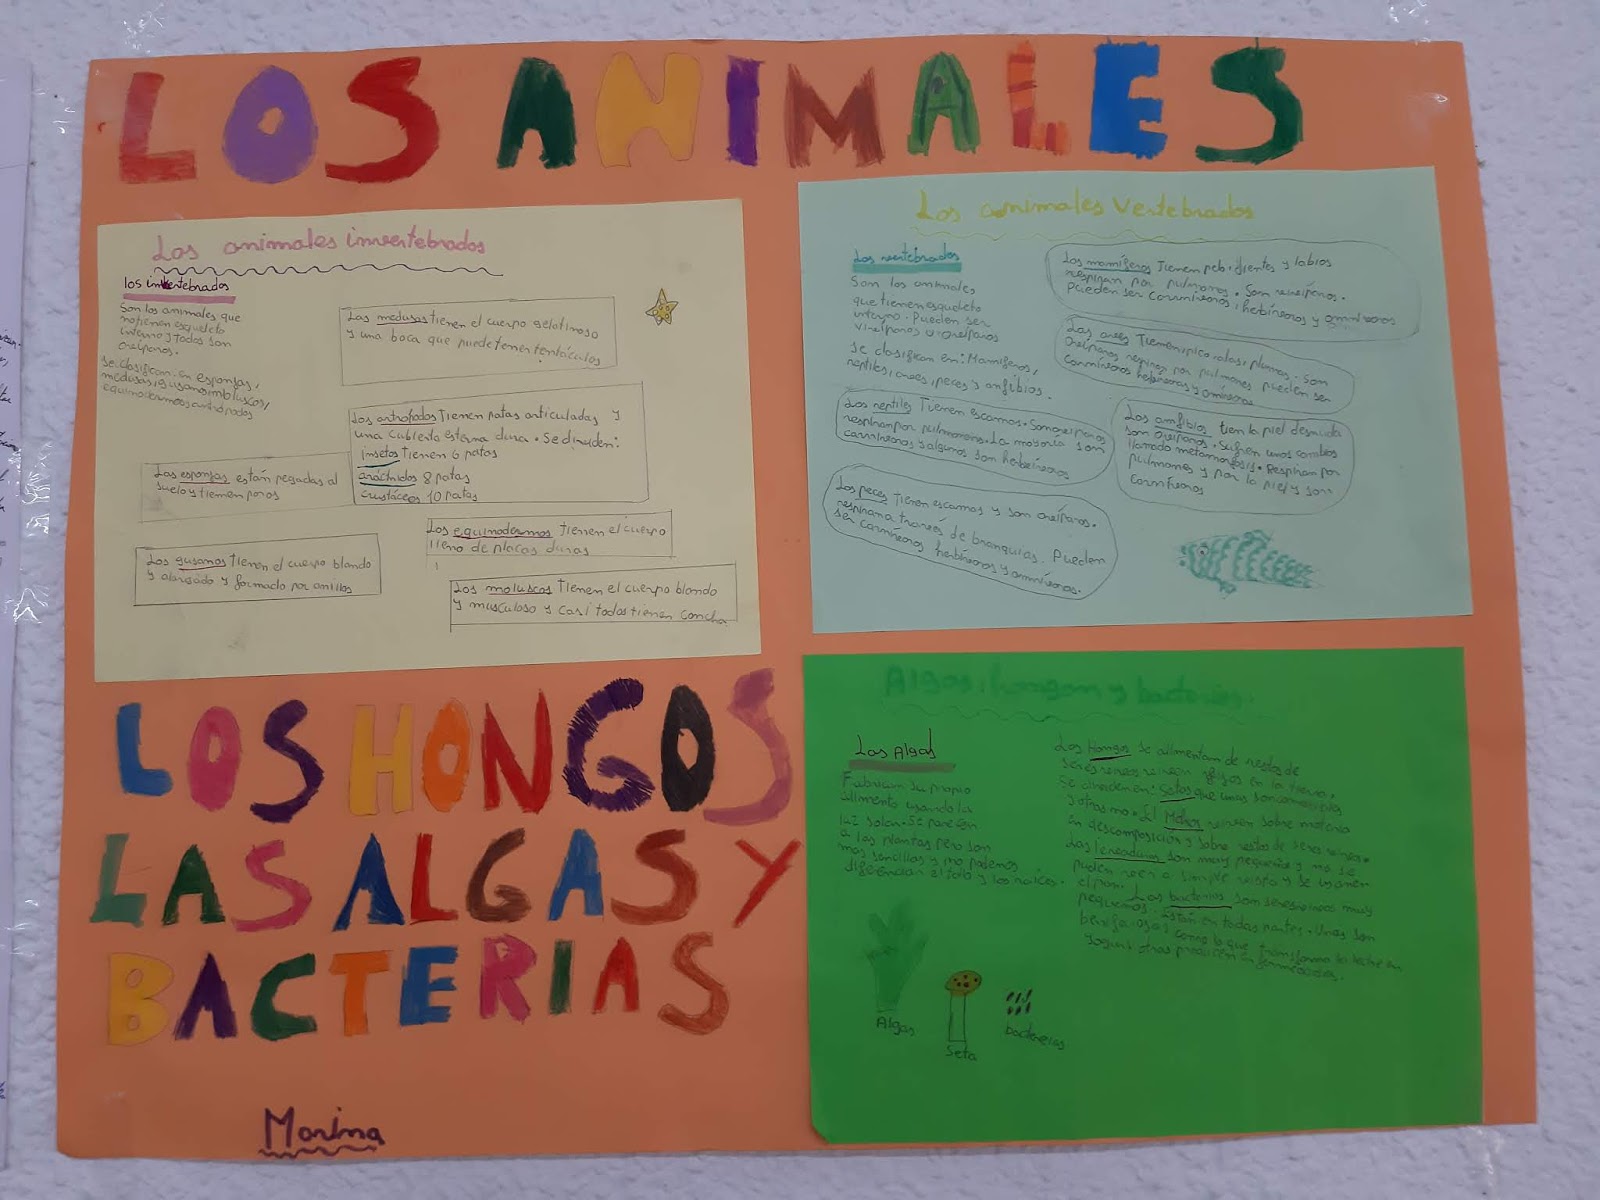 LOS ANIMALES
Los animales invertebrados
los invertebrados
Son los animales que
no tienen esqueleto
interno y todos son
ovíparos.
se clasifican en esponjas,
medusas, gusanos, moluscos,
equinodermos artrópodos
Las medusas tienen el cuerpo gelatinoso
y una boca que puede tener tentáculos
Los artropodos Tienen patas articuladas y
una cubierta externa dura. Se dividen:
Insetos tienen 6 patas
arácnidos 8 patas
crustáceos 10 patas
Las esponjas están pegadas al
suelo y tienen poros
Los equinodermos tienen el cuerpo
lleno de placas duras
Los gusanos tienen el cuerpo blando
y alargado y formado por anillos
Los moluscos Tienen el cuerpo blando
y musculoso y casi todos tienen concha
Los animales Vertebrados
Los vertebrados
Son los animales
que tienen esqueleto
interno. Pueden ser
viviparos u oviparos
se clasifican en: Mamiferos,
reptiles, aves, peces y anfibios.
Los mamíferos Tienen pelo, dientes y labios
respiran por pulmones. Son viviparos.
Pueden ser carnivoros, herbívoros y omnivoros
Las aves Tienen pico, alas, plumas. Son
Oviparos respiran por pulmones pueden ser
carnivoros herbívoros y omnivoros
Los reptiles Tienen escamas. Son oviparos
respiran por pulmones. La mayoría son
carnivoros y algunos son herbívoros
Los amfibios tien la piel desnuda
son Oviparos. Sufren unos cambios
llamado metamorfosis. Respiran por
pulmones y por la piel y son
carnívoros
Los peces Tienen escamas y son oviparos.
respiran a través de branquias. Pueden
ser carnivoros herbivoros y omnivoros.
LOS HONGOS
LAS ALGAS Y
BACTERIAS
Algas, hongos y bacterias
Las Algas
Fabrican su propio
alimento usando la
luz solar. Se parecen
a las plantas pero son
mas sencillas y no podemos
diferenciar el tallo y las raíces.
Los Hongos se alimentan de restos de
seres vivos viven fijos en la tierra.
Se dividen en: Setas que unas son comestibles
y otras no. El Moho viven sobre materia
en descomposición y sobre restos de seres vivos.
Las levaduras son muy pequeñas y no se
pueden ver a simple vista y se usan en
el pan. Las bacterias son seres vivos muy
pequeños. Están en todas partes. Unas son
como la que transforma la leche en
yogurt otras producen enfermedades.
Algas
Seta
bacterias
Marina